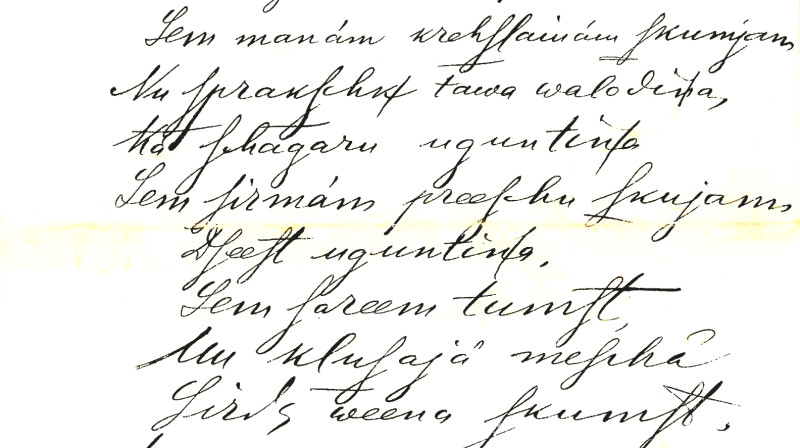 Sem manám krehſlainám ſkumjam
Nu ſprakſchķ tawa walodiņa,
Kâ ſchagaru uguntiņa
Sem ſirmám preeſchu ſkujam
Dſeeſt uguntiņa,
Sem ſareem tumſt,
Un kluſajâ meſchâ
Sirds weena ſkumſt.